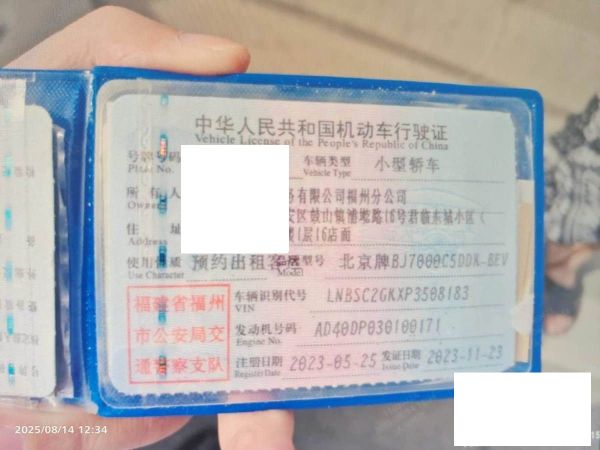 中华人民共和国机动车行驶证
Vehicle License of the People's Republic of China
号牌号码
Plate No.
车辆类型 小型轿车
Vehicle Type
所有人
Owner
有限公司福州分公司
住址
Address
区鼓山镇浦墘路16号君临东城小区(
1层16店面
使用性质 预约出租客
Use Character
型号 北京牌BJ7000C5DDK-BEV
Model
福建省福州
市公安局交
通警察支队
车辆识别代号 LNBSC2GKXP3508183
VIN
发动机号码 AD40DP030100171
Engine No.
注册日期 2023-05-25 发证日期 2023-11-23
Register Date Issue Date
2025/08/14 12:34